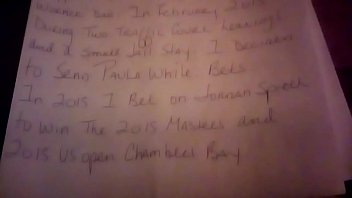 In February 2015
During Two Traffic Court Hearings
and a small Jail Stay. I Decided
to Send Paula White Bets
In 2015 I Bet on Jordan Spieth
to Win The 2015 Masters and
2015 US open Chambers Bay